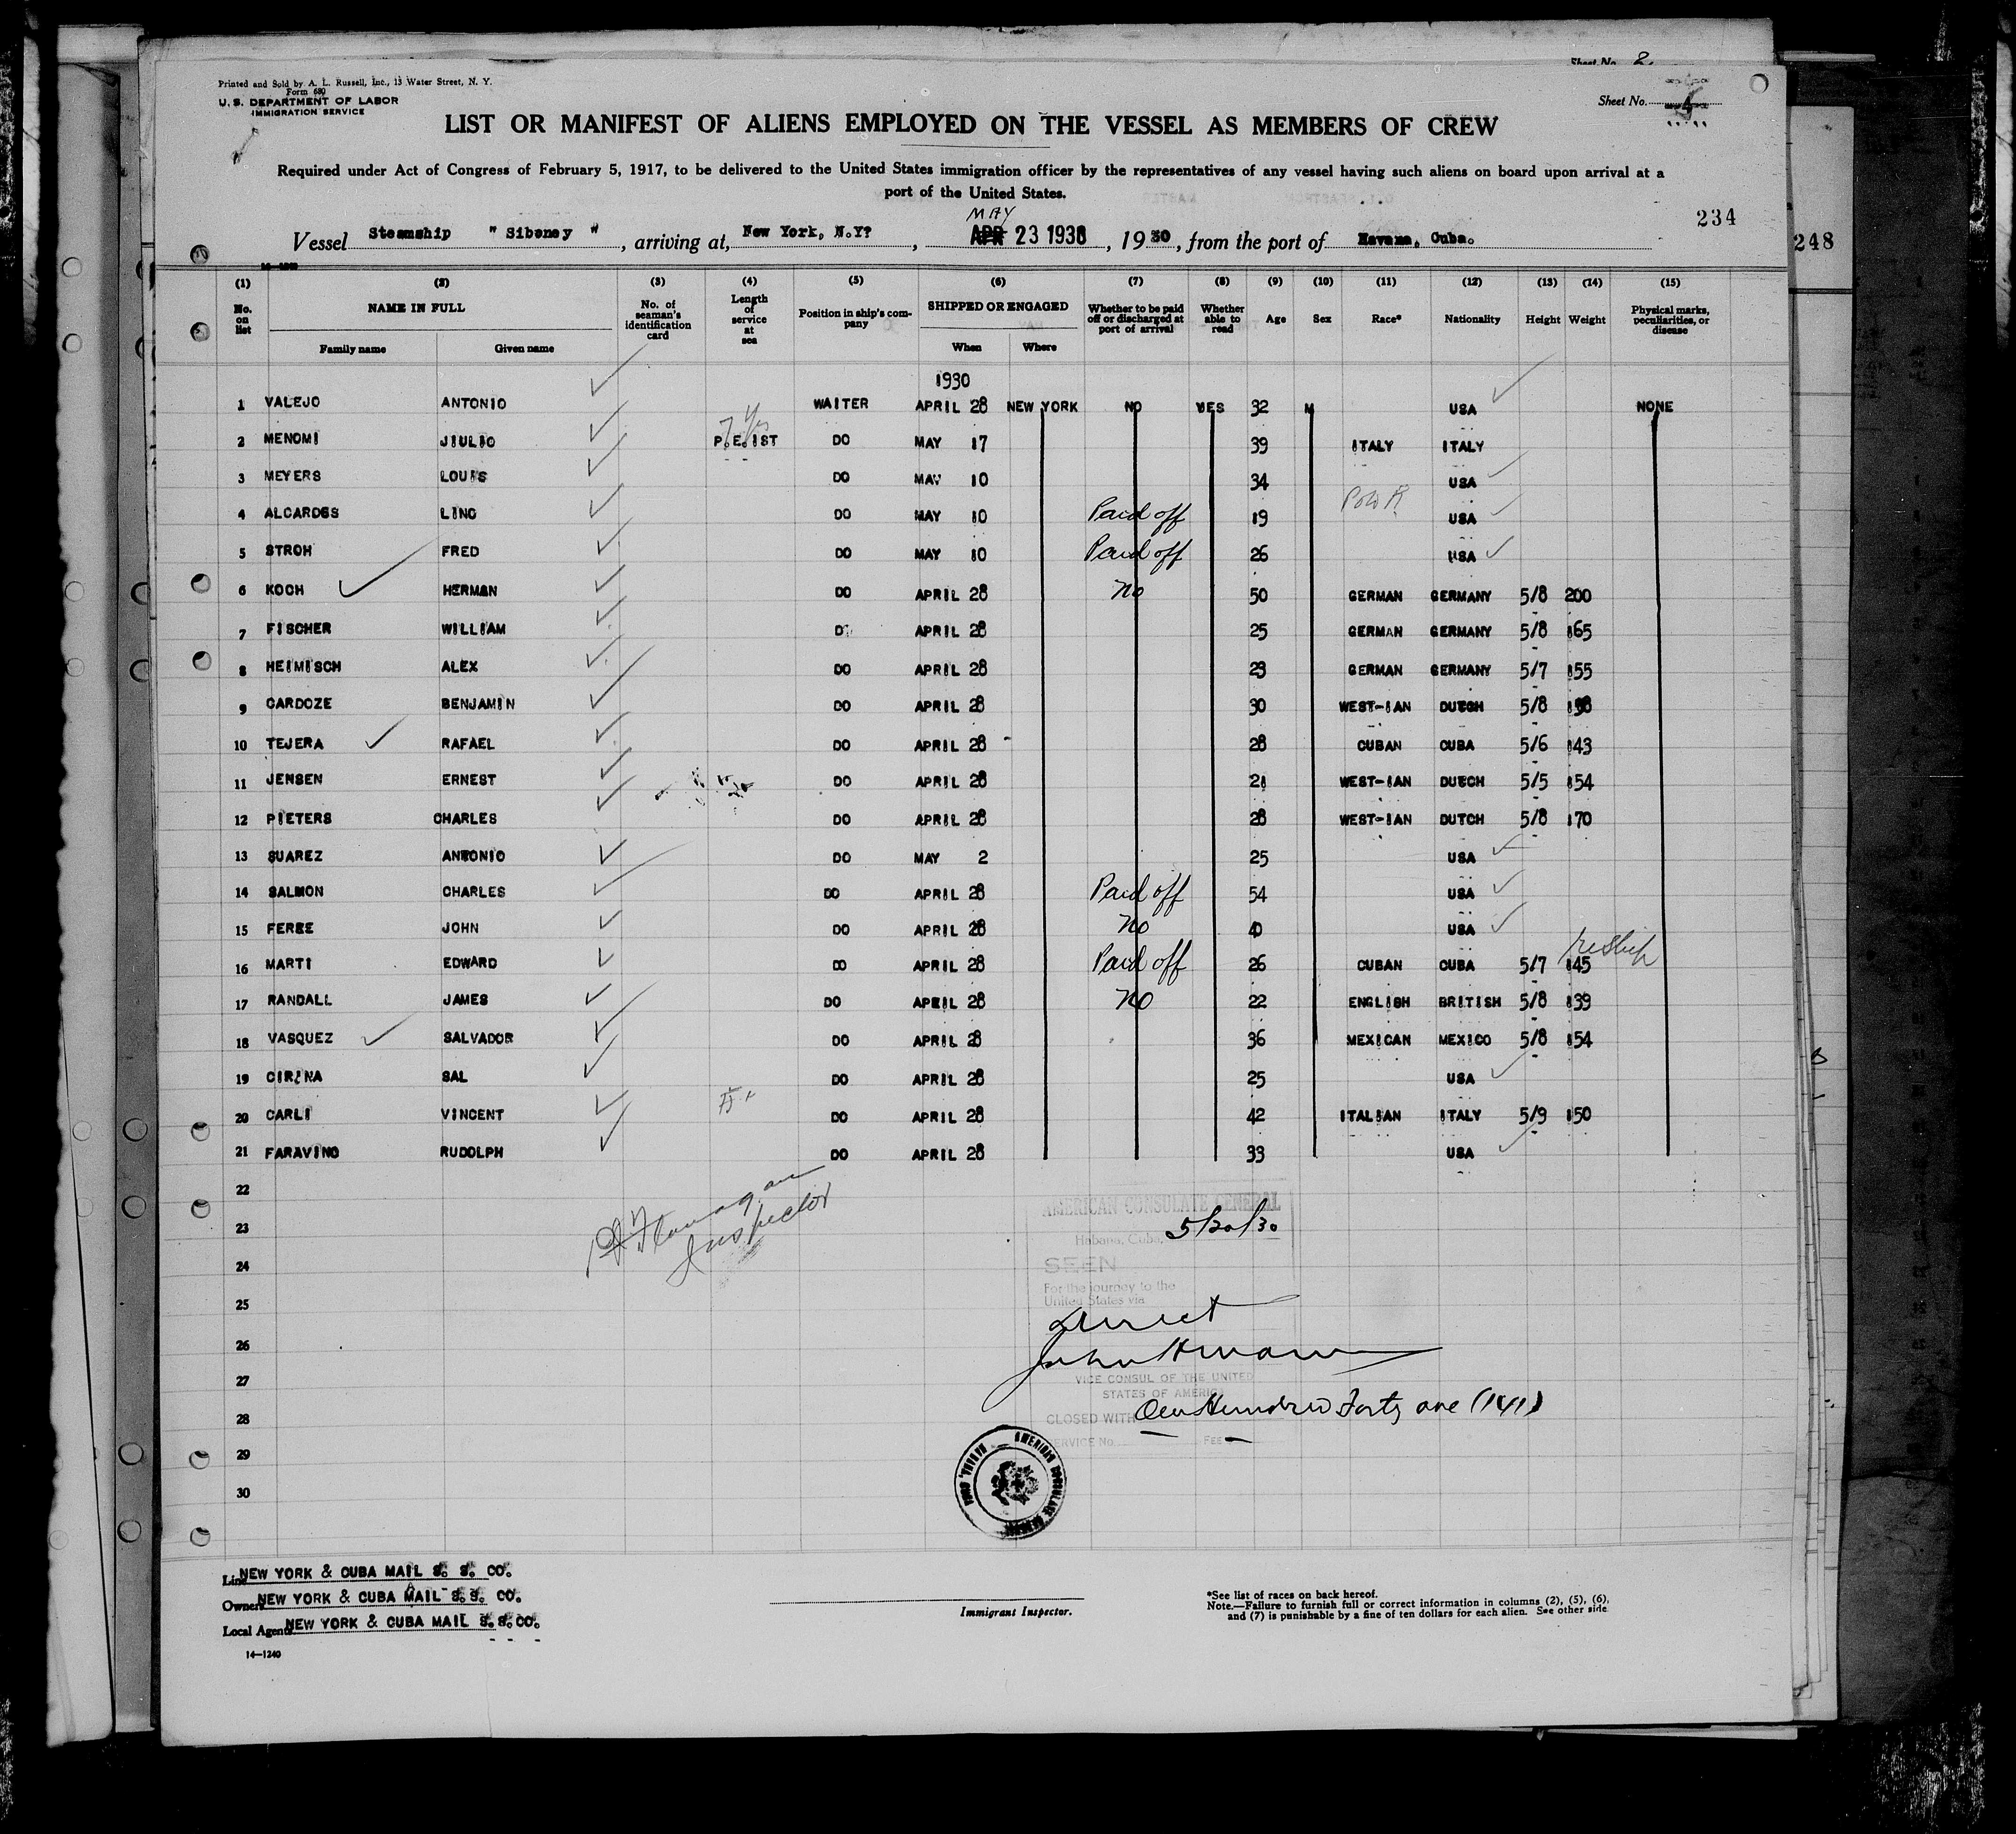 Sheet No. 8.
Printed and Sold by A. L. Russell, Inc., 13 Water Street, N. Y.
Form 680
U. S. DEPARTMENT OF LABOR
IMMIGRATION SERVICE
Sheet No.
LIST OR MANIFEST OF ALIENS EMPLOYED ON THE VESSEL AS MEMBERS OF CREW
Required under Act of Congress of February 5, 1917, to be delivered to the United States immigration officer by the representatives of any vessel having such aliens on board upon arrival at a
port of the United States.
234
248
MAY
Vessel Steamship " Siboney " , arriving at, New York, N.Y? , APR 23 1930 , 1930 , from the port of Havana, Cuba.
(1) (2) (3) (4) (5) (6) (7) (8) (9) (10) (11) (12) (13) (14) (15)
No. on list NAME IN FULL Family name Given name No. of seaman's identification card Length of service at sea Position in ship's company SHIPPED OR ENGAGED When Where Whether to be paid off or discharged at port of arrival Whether able to read Age Sex Race* Nationality Height Weight Physical marks, peculiarities, or disease
1930
1 VALEJO ANTONIO WAITER APRIL 28 NEW YORK NO YES 32 M USA NONE
7 yrs
2 MENOMI JIULIO P.E.IST DO MAY 17 39 ITALY ITALY
3 MEYERS LOUIS DO MAY 10 34 USA
4 ALCARDES LINO DO MAY 10 Paid off 19 USA
5 STROH FRED DO MAY 10 Paid off 26 USA
6 KOCH HERMAN DO APRIL 28 no 50 GERMAN GERMANY 5/8 200
7 FISCHER WILLIAM DO APRIL 28 25 GERMAN GERMANY 5/8 165
8 HEIMISCH ALEX DO APRIL 28 23 GERMAN GERMANY 5/7 155
9 CARDOZE BENJAMIN DO APRIL 28 30 WEST-IAN DUTCH 5/8
10 TEJERA RAFAEL DO APRIL 28 28 CUBAN CUBA 5/6 143
11 JENSEN ERNEST DO APRIL 28 21 WEST-IAN DUTCH 5/5 154
12 PIETERS CHARLES DO APRIL 28 28 WEST-IAN DUTCH 5/8 170
13 SUAREZ ANTONIO DO MAY 2 25 USA
14 SALMON CHARLES DO APRIL 28 Paid off 54 USA
15 FEREE JOHN DO APRIL 28 no 40 USA
reship
16 MARTI EDWARD DO APRIL 28 Paid off 26 CUBAN CUBA 5/7 145
17 RANDALL JAMES DO APRIL 28 no 22 ENGLISH BRITISH 5/8 139
18 VASQUEZ SALVADOR DO APRIL 28 36 MEXICAN MEXICO 5/8 154
19 CIRINA SAL DO APRIL 28 25 USA
20 CARLI VINCENT DO APRIL 28 42 ITALIAN ITALY 5/9 150
21 FARAVINO RUDOLPH DO APRIL 28 33 USA
22
23
24
25
26
27
28
29
30
Inspector
AMERICAN CONSULATE GENERAL
Habana, Cuba, 5/20/30
SEEN
For the journey to the
United States via
direct
VICE CONSUL OF THE UNITED
STATES OF AMERICA
CLOSED WITH One Hundred Forty one (141)
SERVICE No. Fee
AMERICAN CONSULATE GENERAL HABANA, CUBA
Line NEW YORK & CUBA MAIL S. S. CO.
Owners NEW YORK & CUBA MAIL S. S. CO.
Local Agents NEW YORK & CUBA MAIL S. S. CO.
14—1240
Immigrant Inspector.
*See list of races on back hereof.
Note.—Failure to furnish full or correct information in columns (2), (5), (6),
and (7) is punishable by a fine of ten dollars for each alien. See other side